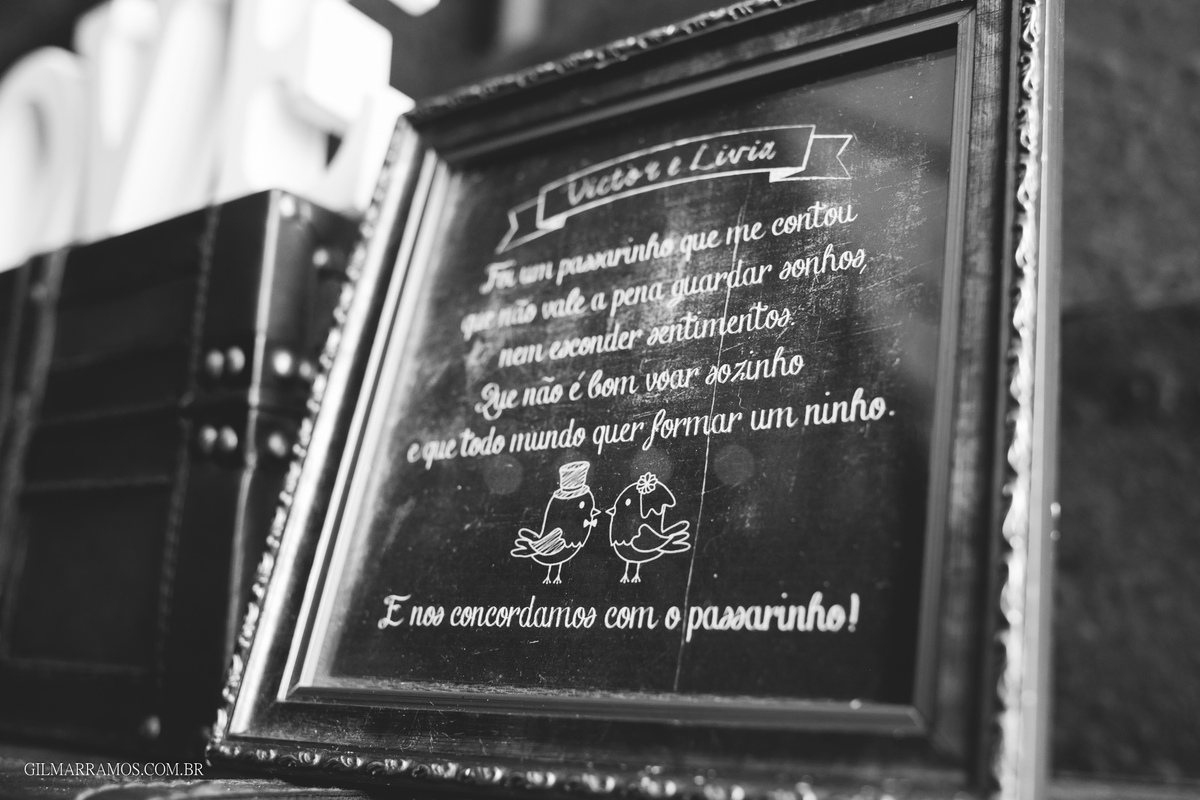 Victor e Livia
Foi um passarinho que me contou
que não vale a pena guardar sonhos,
E nem esconder sentimentos.
Que não é bom voar sozinho
e que todo mundo quer formar um ninho.
E nos concordamos com o passarinho!
GILMARRAMOS.COM.BR